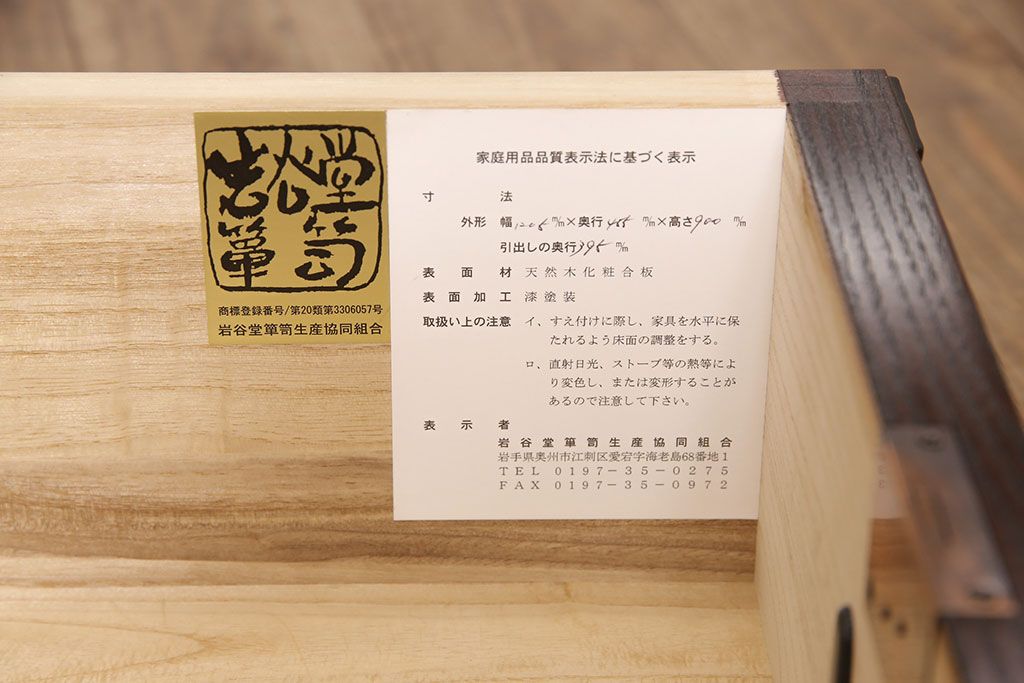 岩谷堂簞笥
商標登録番号/第20類第3306057号
岩谷堂簞笥生産協同組合
家庭用品品質表示法に基づく表示
寸法
外形 幅1205㎜×奥行455㎜×高さ900㎜
引出しの奥行395㎜
表面材 天然木化粧合板
表面加工 漆塗装
取扱い上の注意 イ、すえ付けに際し、家具を水平に保
たれるよう床面の調整をする。
ロ、直射日光、ストーブ等の熱等によ
り変色し、または変形することが
あるので注意して下さい。
表示者
岩谷堂簞笥生産協同組合
岩手県奥州市江刺区愛宕字海老島68番地1
TEL 0197-35-0275
FAX 0197-35-0972